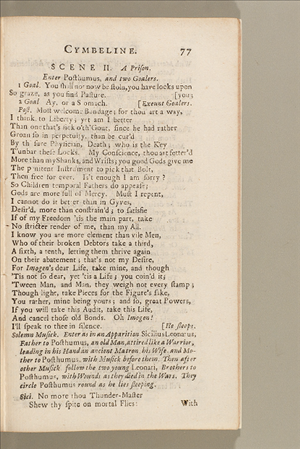 CYMBELINE. 77
SCENE II. A Prison.
Enter Posthumus, and two Goalers.
1 Goal. You shall not now be stoln, you have locks upon
So graze, as you find Pasture. [you;
2 Goal Ay, or a Stomach. [Exeunt Goalers.
Post. Most welcome Bondage; for thou art a way,
I think to Liberty; yet am I better
Than one that's sick o'th'Gout, since he had rather
Groan so in perpetuity, than be cur'd
By th' sure Physician, Death; who is the Key
T'unbar these Locks. My Conscience, thou art fetter'd
More than my Shanks, and Wrists; you good Gods give me
The penitent Instrument to pick that Bolt,
Then free for ever. Is't enough I am sorry?
So Children temporal Fathers do appease;
Gods are more full of Mercy. Must I repent,
I cannot do it better than in Gyves,
Desir'd, more than constrain'd; to satisfie
If of my Freedom 'tis the main part, take
No stricter render of me, than my All.
I know you are more clement than vile Men,
Who of their broken Debtors take a third,
A sixth, a tenth, letting them thrive again
On their abatement; that's not my Desire.
For Imogen's dear Life, take mine, and though
'Tis not so dear, yet 'tis a Life; you coin'd it;
Tween Man, and Man, they weigh not every stamp;
Though light, take Pieces for the Figure's sake,
You rather, mine being yours; and so, great Powers,
If you will take this Audit, take this Life,
And cancel those old Bonds. Oh Imogen!
I'll speak to thee in silence. [He sleeps.
Solemn Musick. Enter as in an Apparition Sicilius Leonatus,
Father to Posthumus, an old Man, attired like a Warrior,
leading in his Hand an ancient Matron, his Wife, and Mo-
ther to Posthumus, with Musick before them. Then after
other Musick follow the two young Leonati, Brothers to
Posthumus, with Wounds as they died in the Wars. They
circle Posthumus round as he lies sleeping.
Sici. No more thou Thunder-Master
Shew thy spite on mortal Flies: With